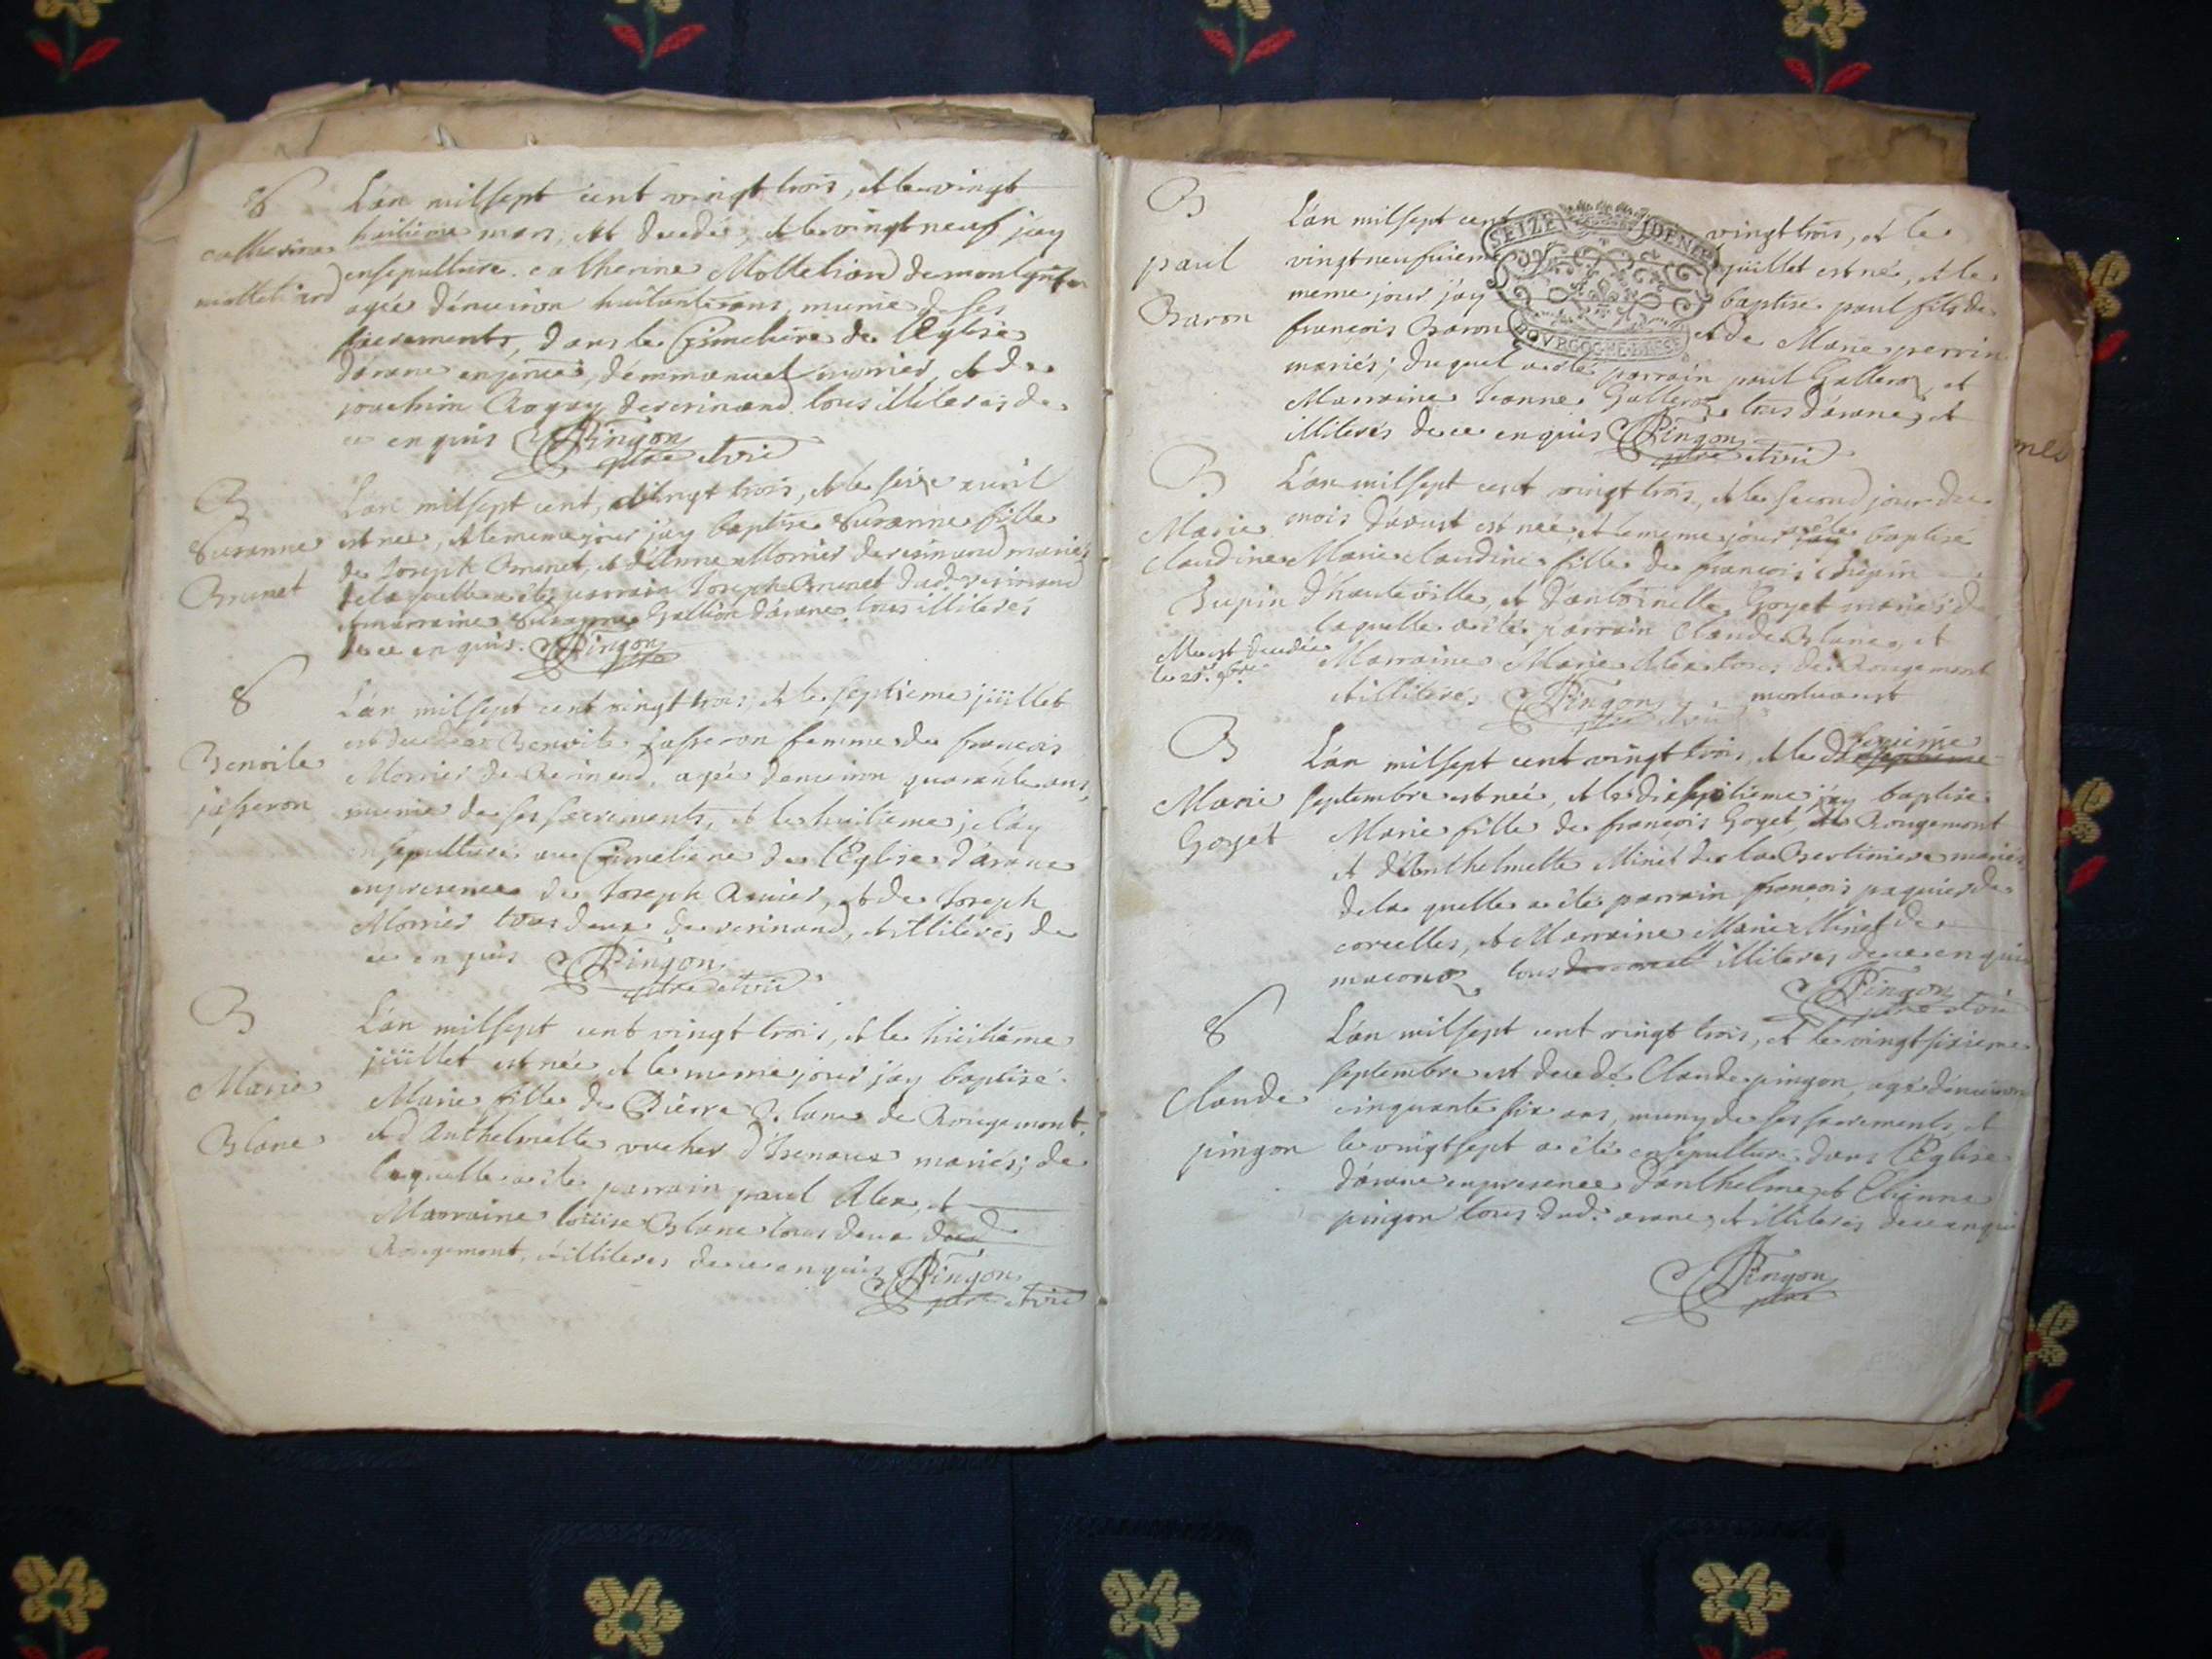 S
catherine
molletiard
L'an milsept cent vingt trois, et le vingt
huitieme mars, est decedée, et le vingt neuf j'ay
ensepulturé catherine Molletiard
agée d'environ huitante ans, munie de ses
sacrements, dans le Cimetiere de l'Eglise
d'arane en presence, d'emmanuel morrier, et de
joachim Rogay de resinand tous illiteres de
ce enquis Pingon
ptre et vic
B
Susanne
Brunet
L'an milsept cent, vingt trois, et le seize avril
est neé, et le meme jour j'ay baptisé Susanne fille
de Joseph Brunet, et d'Anne Morrier de resinand mariés
de laquelle a été parrain Joseph Brunet dud. resinand
et marraine Susanne Gallion d'arane tous illiterés
de ce enquis. Pingon
ptre
S
Benoite
jasseron
L'an milsept cent vingt trois, et le septieme juillet
est decedeé Benoite jasseron femme de françois
Morrier de Resinand, agée d'environ quarante ans,
munie de ses sacrements, et le huitieme je l'ay
ensepulturé au Cimetiere de l'Eglise d'arane
en presence de Joseph Ravier, et de Joseph
Morrier tous deux de resinand, et illiterés de
ce enquis Pingon
ptre et vic
B
Marie
Blanc
L'an milsept cent vingt trois, et le huitieme
juillet est née, et le meme jour j'ay baptisé
Marie fille de Pierre Blanc de Rougemont
et d'Anthelmette vucher d'Izenave mariés; de
laquelle a été parrain paul Alex, et
Marraine loüise Blanc tous deux dud
Rougemont, et illiteres de ce enquis Pingon
ptre et vic
B
paul
Baron
L'an milsept cent vingt trois, et le
vingt neufvieme juillet est né, et le
meme jour j'ay baptisé paul fils de
françois Baron et de Marie perrin
mariés; duquel a été parrain paul Galleroz, et
Marraine Jeanne Galleroz tous d'arane, et
illiterés de ce enquis Pingon
ptre et vic
SEIZE DENC
BOVRGOGNE BRESSE
B
Marie
Claudine
Dupin
Elle est decedée
le 21e 9bre
L'an milsept cent vingt trois, et le second jour du
mois d'avust est neé, et le meme jour a été baptisé
Marie Claudine fille de françois Dupin
d'hauteville, et d'antoinette Goyet mariés; de
laquelle a été parrain Claude Blanc, et
Marraine Marie Alex tous de Rougemont
et illiterés Pingon mortua est
ptre et vic
B
Marie
Goyet
L'an milsept cent vingt trois, et le seizieme
septembre est neé, et le dixseptieme j'ay baptisé
Marie fille de françois Goyet, de Rougemont
et d'Anthelmette Minet de la Bertiniere mariés
de laquelle a été parrain françois paquier de
corcelles, et Marraine Marie Minet de
maconoz tous illiteres de ce enquis
Pingon
ptre et vic
S
Claude
pingon
L'an milsept cent vingt trois, et le vingt sixieme
septembre est decedé Claude pingon, agé d'environ
cinquante six ans, muny de ses sacrements, et
le vingt sept a été ensepulturé dans l'Eglise
d'arane en presence d'anthelme, et Etienne
pingon tous dud. arane, et illiterés de ce enquis
Pingon
ptre